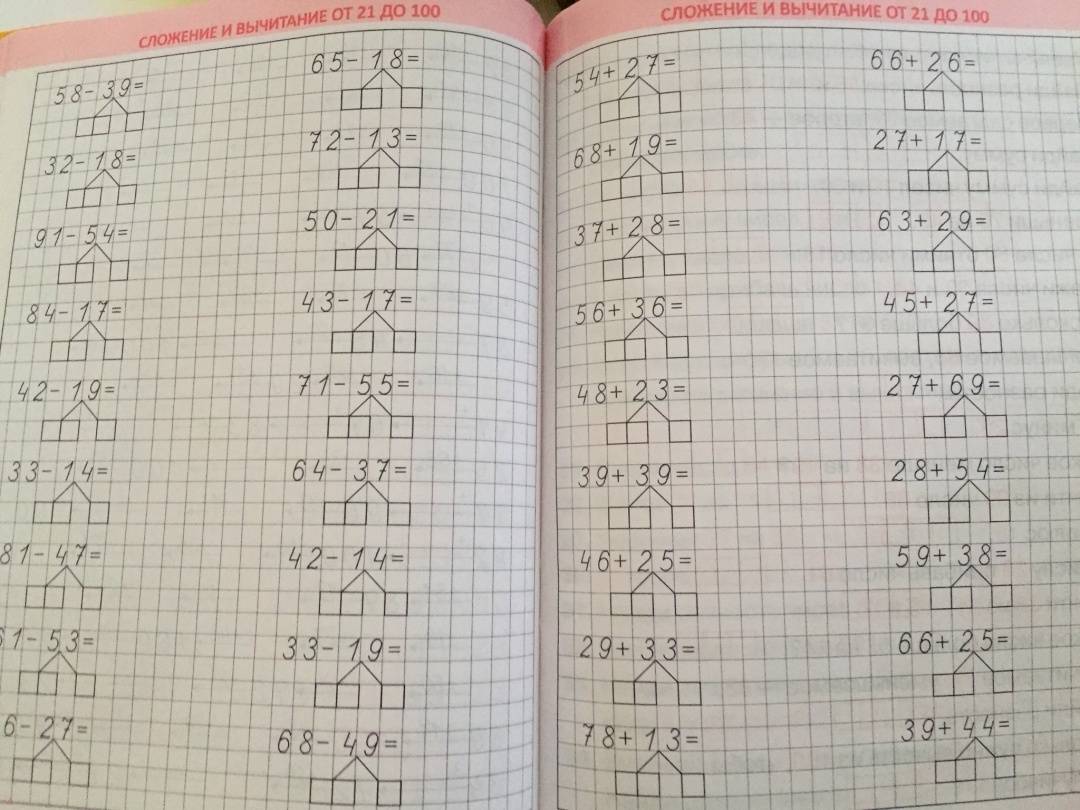 СЛОЖЕНИЕ И ВЫЧИТАНИЕ ОТ 21 ДО 100
58-39=
32-18=
91-54=
84-17=
42-19=
33-14=
81-47=
61-53=
6-27=
65-18=
72-13=
50-21=
43-17=
71-55=
64-37=
42-14=
33-19=
68-49=
СЛОЖЕНИЕ И ВЫЧИТАНИЕ ОТ 21 ДО 100
54+27=
68+19=
37+28=
56+36=
48+23=
39+39=
46+25=
29+33=
78+13=
66+26=
27+17=
63+29=
45+27=
27+69=
28+54=
59+38=
66+25=
39+44=